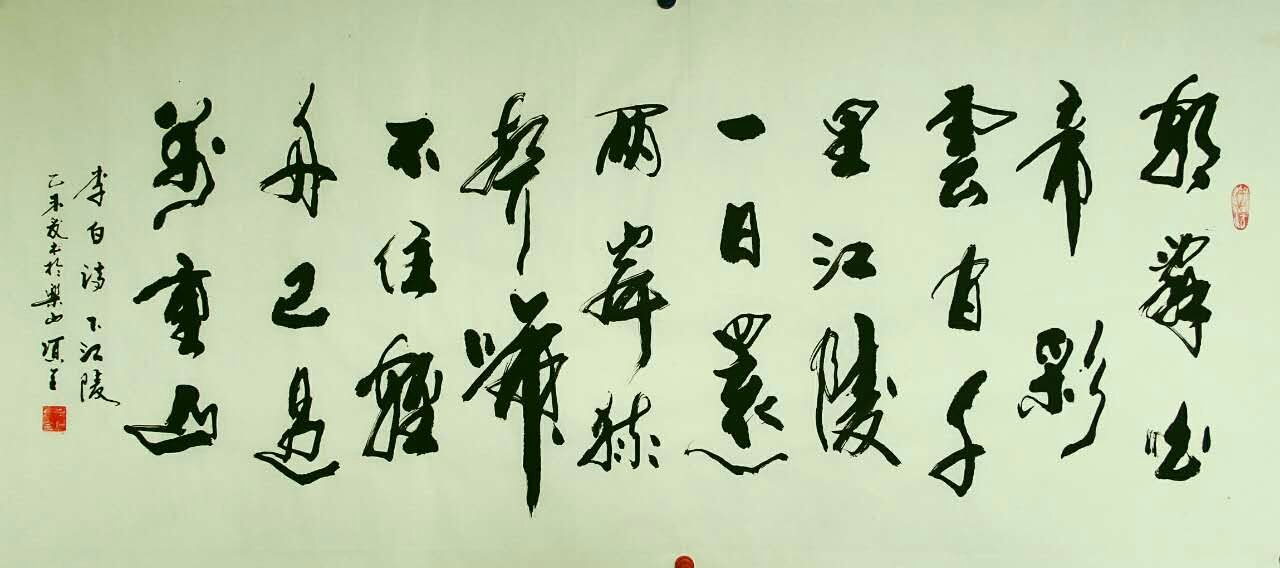 朝辭白
帝彩
雲間千
里江陵
一日還
兩岸猿
聲啼
不住輕
舟已過
萬重山
李白詩下江陵
乙未夏書於樂山